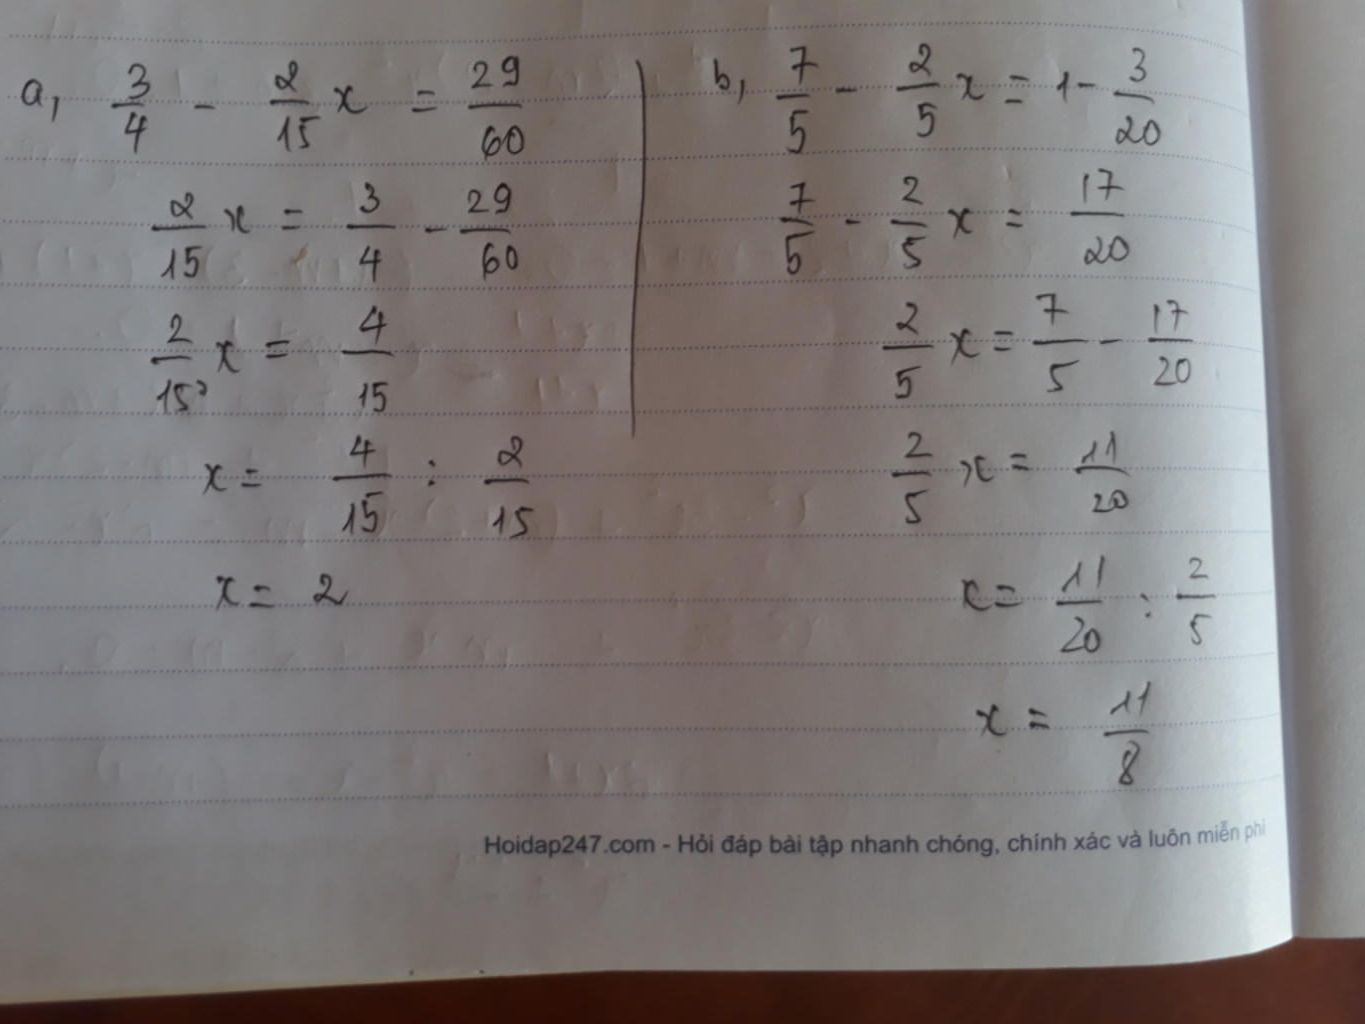 a, 3/4 - 2/15 x = 29/60
2/15 x = 3/4 - 29/60
2/15 x = 4/15
x = 4/15 : 2/15
x = 2
b, 7/5 - 2/5 x = 1 - 3/20
7/5 - 2/5 x = 17/20
2/5 x = 7/5 - 17/20
2/5 x = 11/20
x = 11/20 : 2/5
x = 11/8
Hoidap247.com - Hỏi đáp bài tập nhanh chóng, chính xác và luôn miễn phí